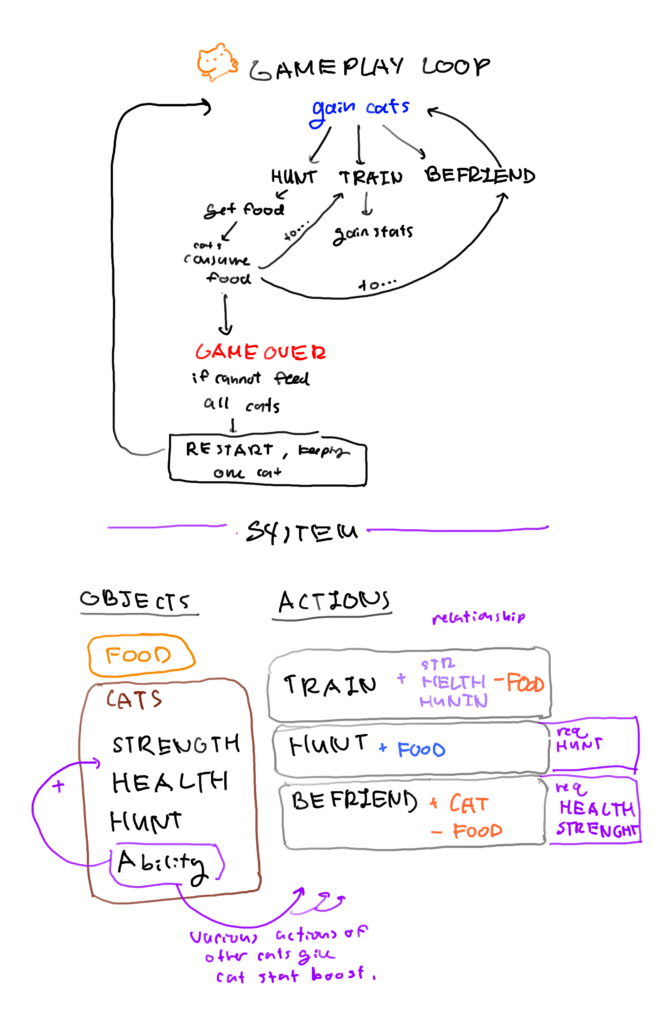 GAMEPLAY LOOP
gain cats
HUNT TRAIN BEFRIEND
get food
gain stats
to...
cats
consume
food
to...
GAME OVER
if cannot feed
all cats
RESTART, keeping
one cat
SYSTEM
OBJECTS
ACTIONS
relationship
FOOD
CATS
STRENGTH
HEALTH
HUNT
Ability
+
TRAIN + STR
HELTH
HUNIN
- FOOD
HUNT + FOOD
req
HUNT
BEFRIEND + CAT
- FOOD
req
HEALTH
STRENGHT
various actions of
other cats give
cat stat boost.